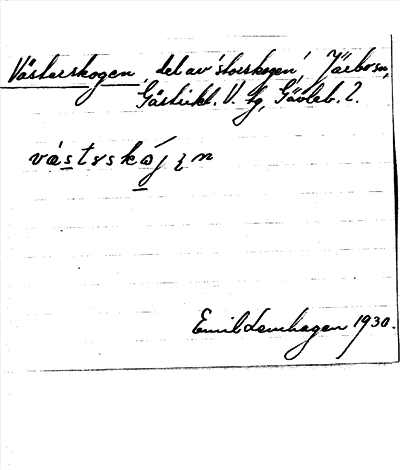 Västerskogen, del av 'storskogen', Järbo sn,
Gästrikl. V. tg, Gävleb. l.
västrskǫ́jen
Emil Lemhagen 1930.